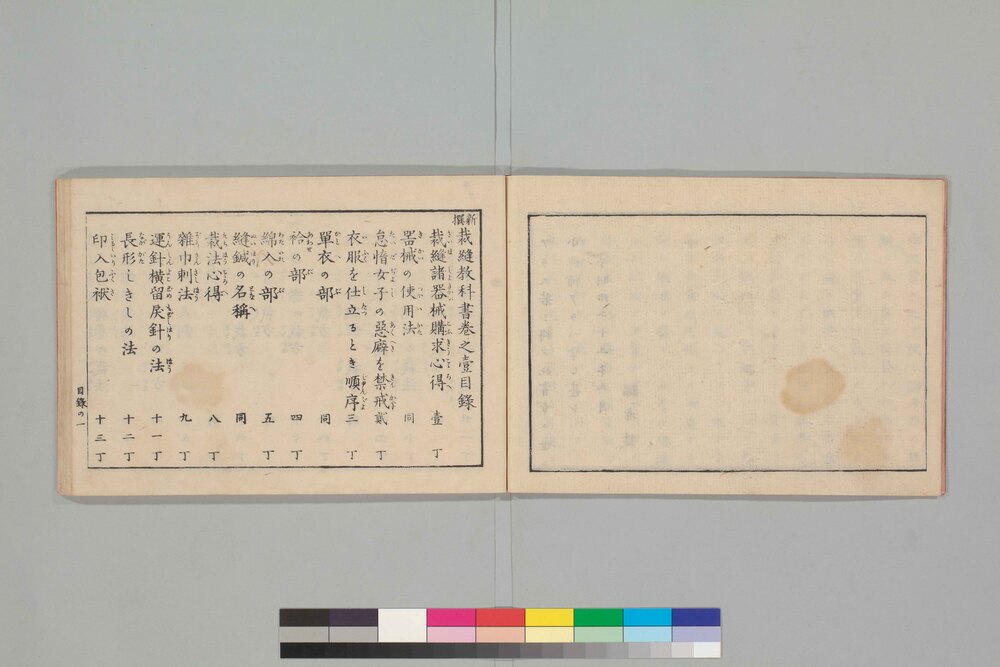 新撰裁縫教科書巻之壹目錄
裁縫諸器械購求心得 壹丁
器械の使用法 同
怠惰女子の惡癖を禁戒 貳丁
衣服を仕立るとき順序 三丁
單衣の部 同
袷の部 四丁
綿入の部 五丁
縫鍼の名稱 同
裁法心得 八丁
雜巾刺法 九丁
運針橫留戾針の法 十一丁
長形しきしの法 十二丁
印入包袱 十三丁
目錄の一